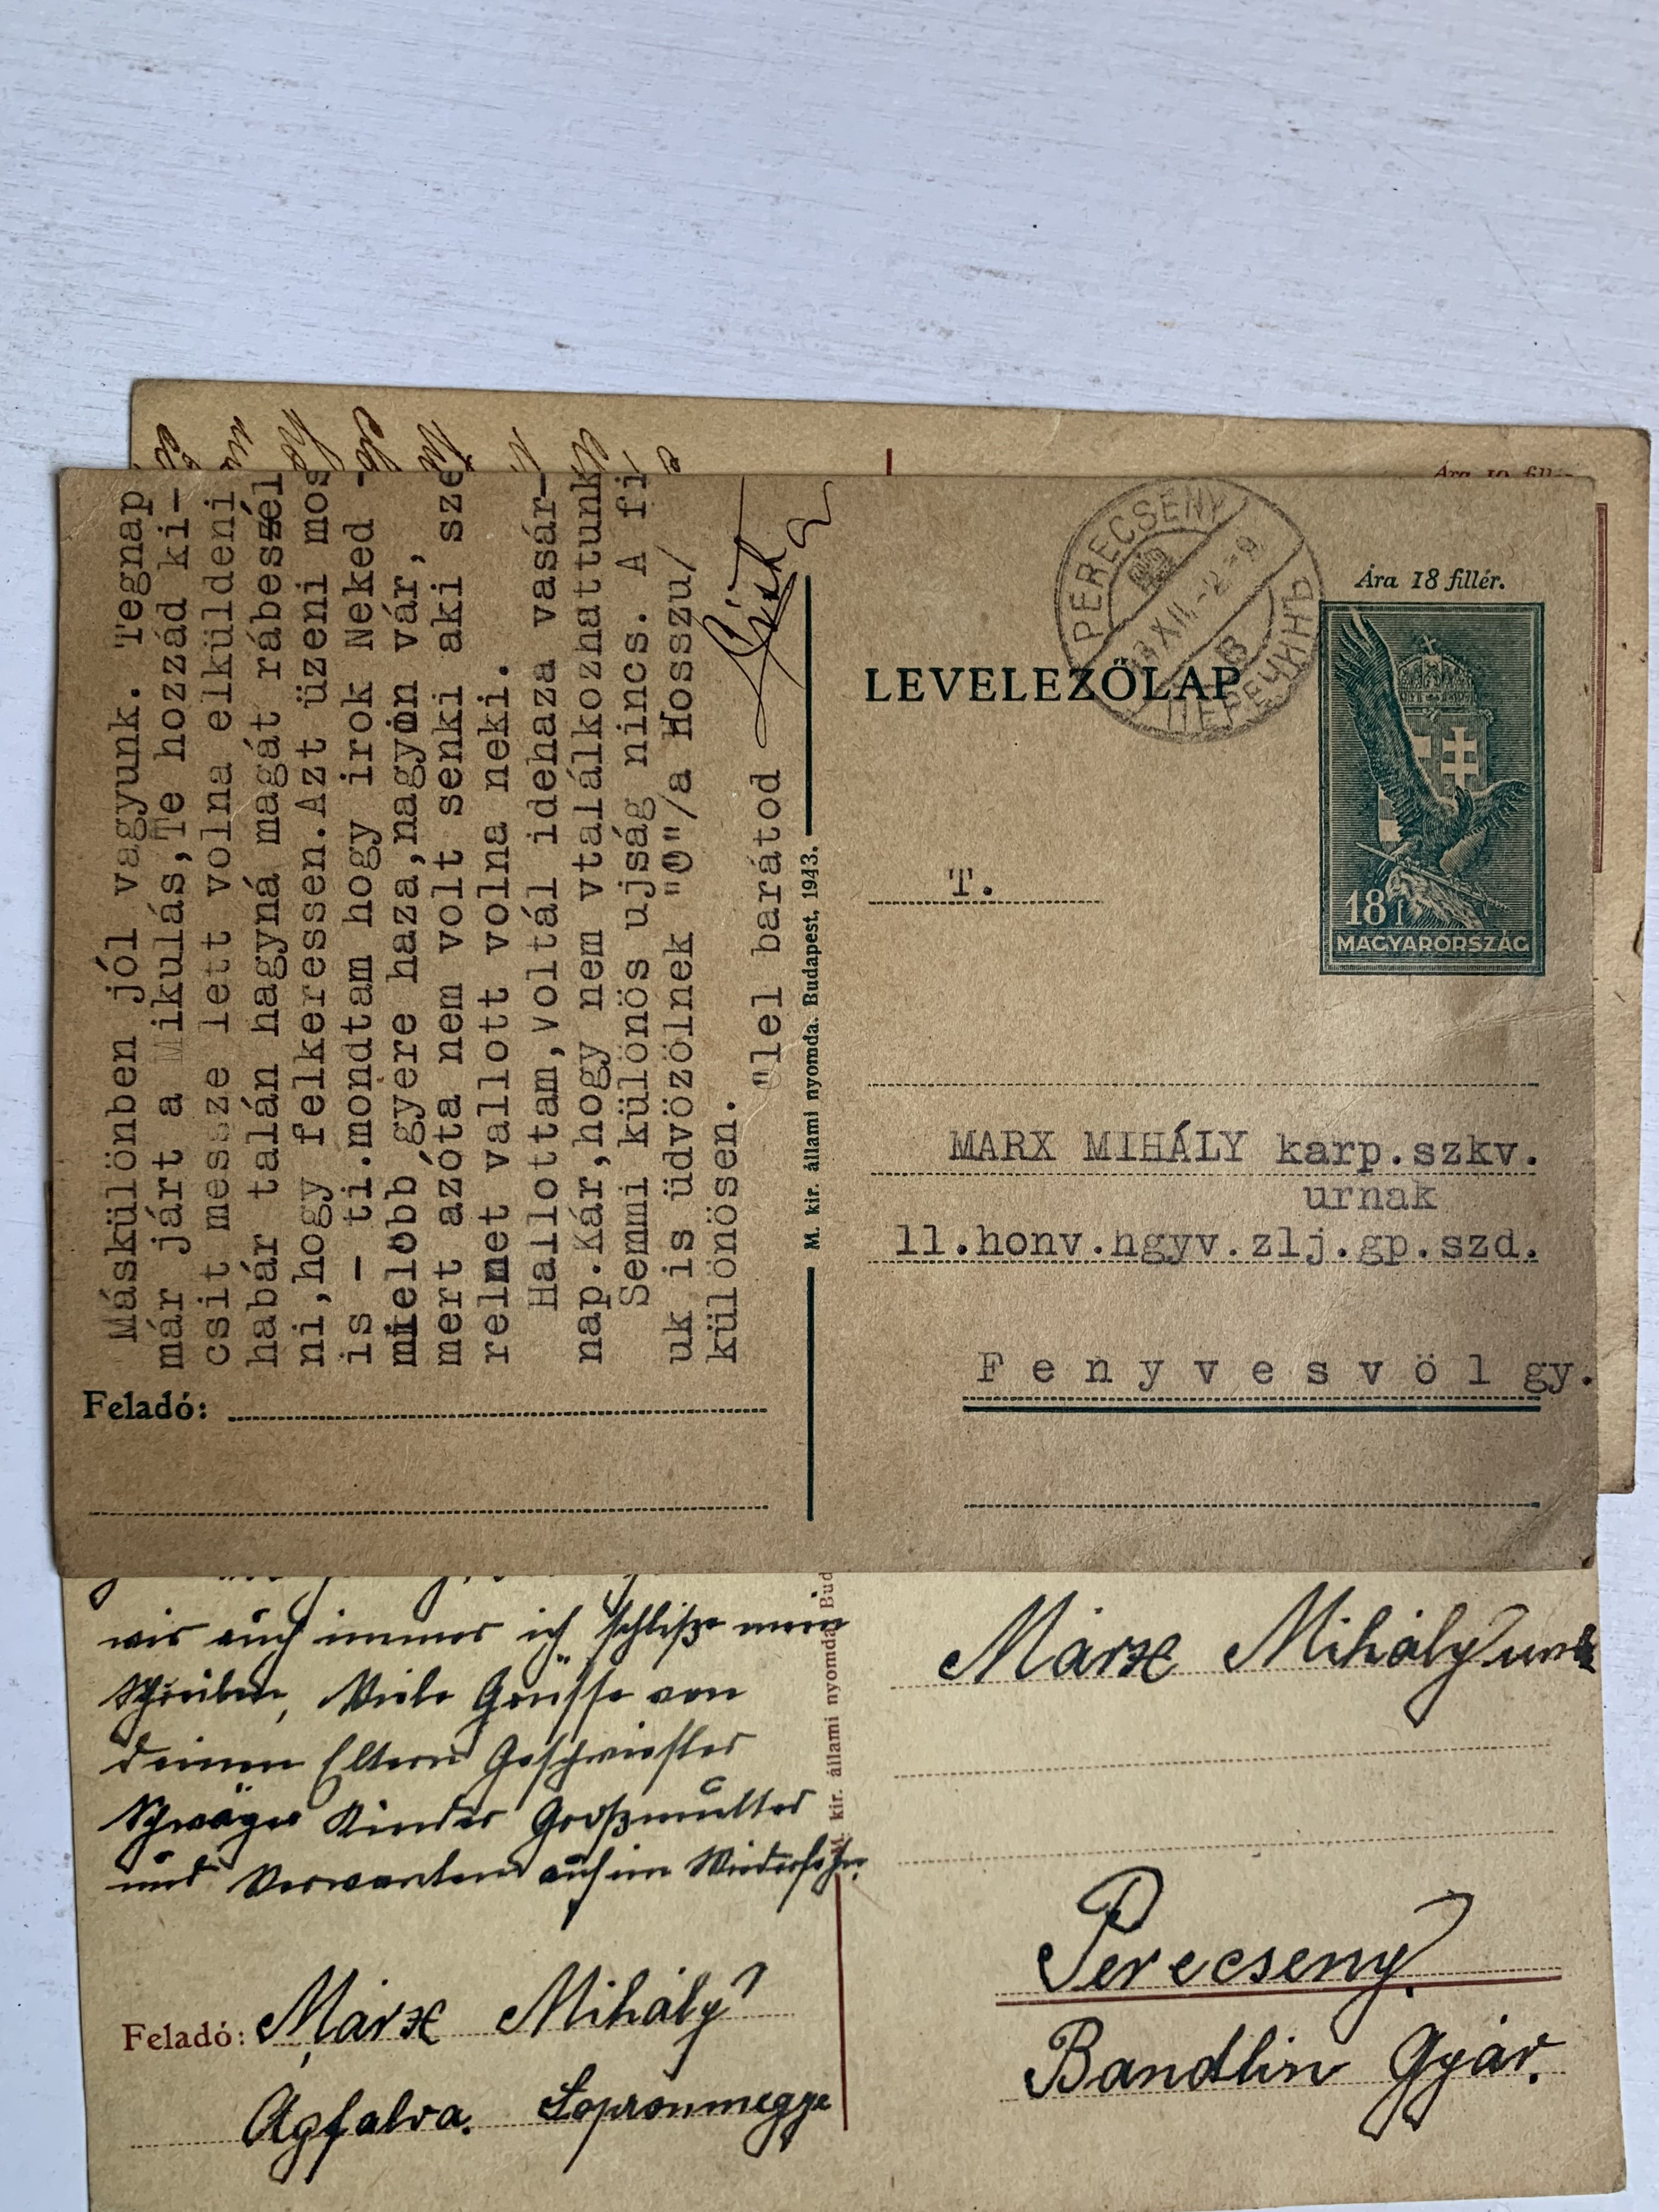 Ára 10 fillér.
Máskülönben jól vagyunk. Tegnap
már járt a Mikulás,Te hozzád ki-
csit messze lett volna elküldeni
habár talán hagyná magát rábeszél
ni,hogy felkeressen.Azt üzeni mos
is - ti.mondtam hogy irok Neked -
mielőbb gyere haza,nagyon vár,
mert azóta nem volt senki aki sze
relmet vallott volna neki.
Hallottam,voltál idehaza vasár-
nap.Kár,hogy nem vtalálkozhattunk
Semmi különös ujság nincs. A fi
uk is üdvözölnek "O"/a Hosszu/
különösen.
"lel barátod
Feladó:
M. kir. állami nyomda. Budapest, 1943.
PERECSENY
43 XII.-2-9
B
ПЕРЕЧИНЬ
Ára 18 fillér.
LEVELEZŐLAP
18 f
MAGYARORSZÁG
T.
MARX MIHÁLY karp.szkv.
urnak
11.honv.hgyv.zlj.gp.szd.
Fenyvesvölgy.
wir auch immer ich schliße mein
Schreiben, Viele Grüsse von
deinen Eltern Geschwister
Schwäger Kinder Großmutter
und Verwanten auf im Wiedersehn.
Feladó: Márx Mihály
Agfalva. Sopronmegye
M. kir. állami nyomda Bud
Márx Mihály
Perecseny
Bandlin Gyár.